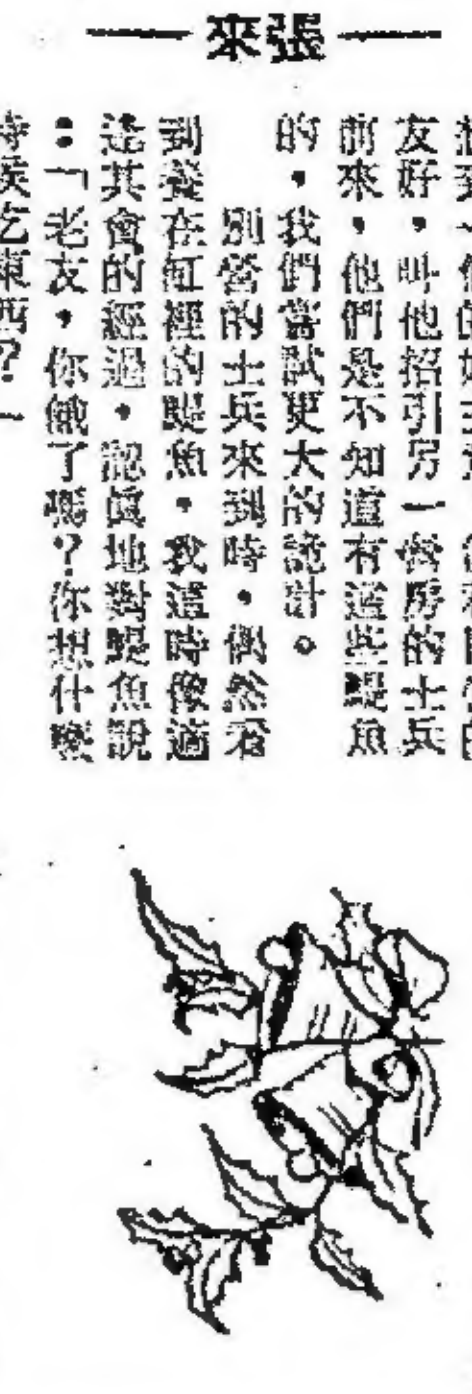 張來
友好，叫他招引另一營房的士兵
前來，他們是不知道有這些鯷魚
的，我們嘗試更大的詭計。
別營的士兵來到時，偶然看
到養在缸裡的鯷魚，我這時像適
逢其會的經過，認真地對鯷魚說
：「老友，你餓了嗎？你想什麼
時候吃東西？」